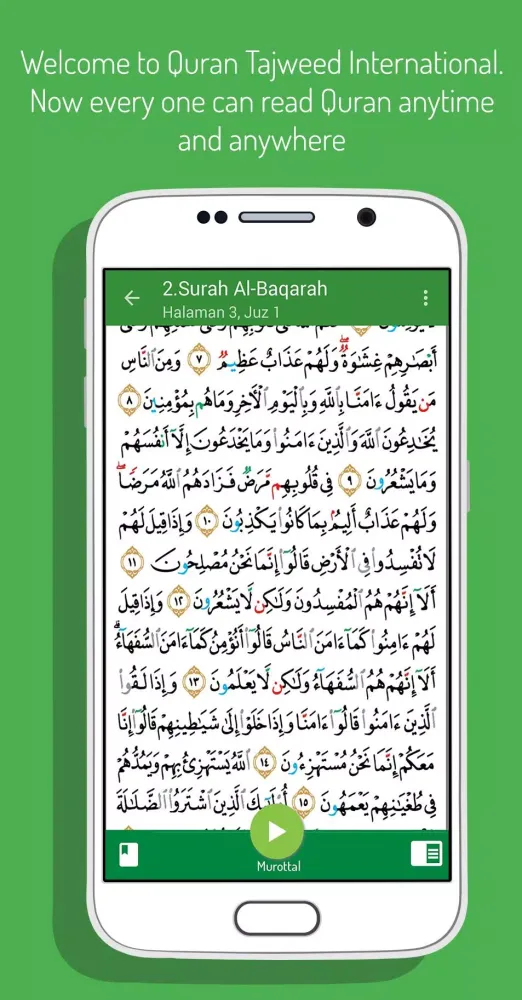 Welcome to Quran Tajweed International.
Now every one can read Quran anytime
and anywhere
2.Surah Al-Baqarah
Halaman 3, Juz 1
أَبْصَٰرِهِمْ غِشَٰوَةٌ وَلَهُمْ عَذَابٌ عَظِيمٌ ٧ وَمِنَ ٱلنَّاسِ
مَن يَقُولُ ءَامَنَّا بِٱللَّهِ وَبِٱلْيَوْمِ ٱلْأَخِرِ وَمَا هُم بِمُؤْمِنِينَ ٨
يُخَٰدِعُونَ ٱللَّهَ وَٱلَّذِينَ ءَامَنُوا۟ وَمَا يَخْدَعُونَ إِلَّآ أَنفُسَهُمْ
وَمَا يَشْعُرُونَ ٩ فِى قُلُوبِهِم مَّرَضٌ فَزَادَهُمُ ٱللَّهُ مَرَضًا
وَلَهُمْ عَذَابٌ أَلِيمٌۢ بِمَا كَانُوا۟ يَكْذِبُونَ ١٠ وَإِذَا قِيلَ لَهُمْ
لَا تُفْسِدُوا۟ فِى ٱلْأَرْضِ قَالُوٓا۟ إِنَّمَا نَحْنُ مُصْلِحُونَ ١١
أَلَآ إِنَّهُمْ هُمُ ٱلْمُفْسِدُونَ وَلَٰكِن لَّا يَشْعُرُونَ ١٢ وَإِذَا قِيلَ
لَهُمْ ءَامِنُوا۟ كَمَآ ءَامَنَ ٱلنَّاسُ قَالُوٓا۟ أَنُؤْمِنُ كَمَآ ءَامَنَ ٱلسُّفَهَآءُ
أَلَآ إِنَّهُمْ هُمُ ٱلسُّفَهَآءُ وَلَٰكِن لَّا يَعْلَمُونَ ١٣ وَإِذَا لَقُوا۟
ٱلَّذِينَ ءَامَنُوا۟ قَالُوٓا۟ ءَامَنَّا وَإِذَا خَلَوْا۟ إِلَىٰ شَيَٰطِينِهِمْ قَالُوٓا۟ إِنَّا
مَعَكُمْ إِنَّمَا نَحْنُ مُسْتَهْزِءُونَ ١٤ ٱللَّهُ يَسْتَهْزِئُ بِهِمْ وَيَمُدُّهُمْ
فِى طُغْيَٰنِهِمْ يَعْمَهُونَ ١٥ أُو۟لَٰٓئِكَ ٱلَّذِينَ ٱشْتَرَوُا۟ ٱلضَّلَٰلَةَ
Murottal